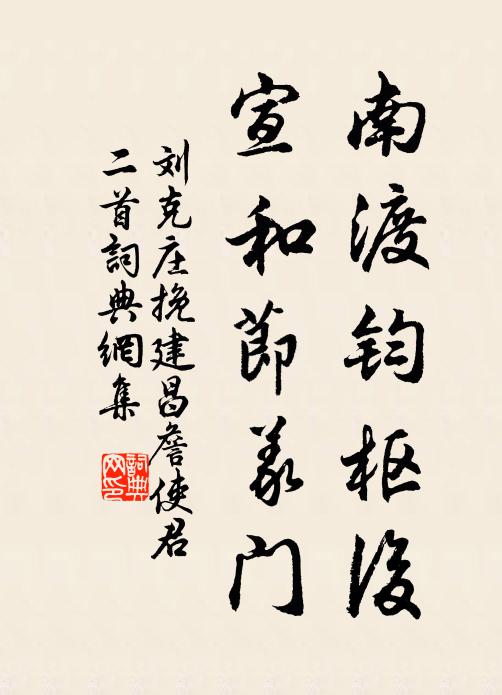 南渡钧枢後
宣和節義门
刘克庄挽建昌詹使君
二首詞典網集
詞典网印